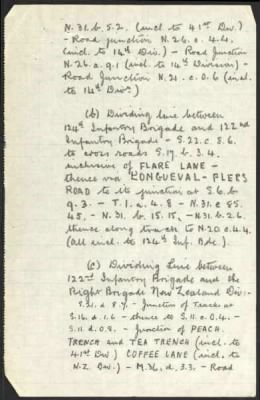 N.31.b.5.2. (incl to 41st Div.)
- Road junction N.26.c.4.4.
(incl. to 14th Div.) - Road Junction
N.26.a.9.1 (incl. to 14th Division) -
Road Junction N.21.c.0.6 (incl.
to 14th Div.)
(b) Dividing line between
124th Infantry Brigade and 122nd
Infantry Brigade - S.22.c.8.6.
to cross roads S.17.b.3.4.
inclusive of FLARE LANE -
thence via LONGUEVAL-FLERS
ROAD to its junction at S.6.b
9.3. - T.1.a.4.8 - N.31.c.85.
45. - N.31.b.15.15. - N.31.b.2.6.
thence along track to N.20.c.4.4.
(All incl. to 124th Inf. Bde.)
(c) Dividing Line between
122nd Infantry Brigade and the
Right Brigade New Zealand Div:-
- Junction of Tracks at
S.16.d.1.6 - thence to S.11.c.0.4. -
S.11.d.0.8. - Junction of PEACH
TRENCH and TEA TRENCH (incl. to
41st Div.) COFFEE LANE (incl. to
N.Z. Div.) - M.36.d.3.3. - Road